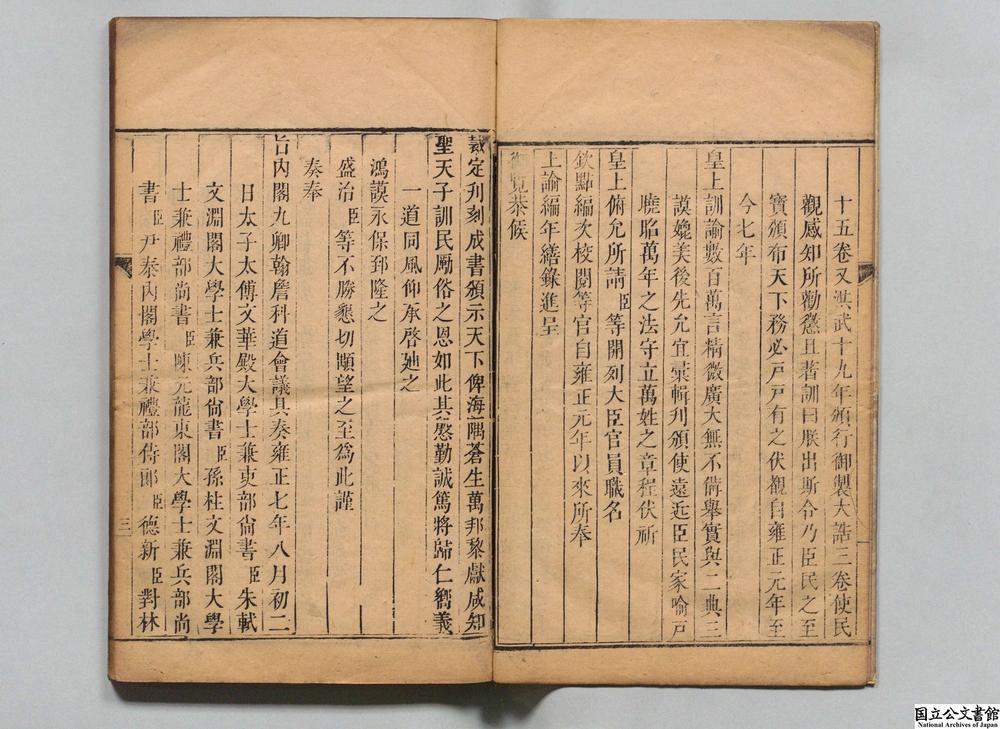 十五卷又洪武十九年頒行御製大誥三卷使民
觀感知所勸懲且著訓曰朕出斯令乃臣民之至
寶頒布天下務必戶戶有之伏觀自雍正元年至
今七年
皇上訓諭數百萬言精微廣大無不備舉實與二典三
謨媲美後先允宜彙輯刋頒使遠近臣民家喻戶
曉貽萬年之法守立萬姓之章程伏祈
皇上俯允所請臣等開列大臣官員職名
欽點編次校閱等官自雍正元年以來所奉
上諭編年繕錄進呈
御覽恭候
裁定刋刻成書頒示天下俾海隅蒼生萬邦黎獻咸知
聖天子訓民勵俗之恩如此其慇勤誠篤將歸仁嚮義
一道同風仰承啓廸之
鴻謨永保郅隆之
盛治臣等不勝懇切顒望之至為此謹
奏奉
旨內閣九卿翰詹科道會議具奏雍正七年八月初二
日太子太傅文華殿大學士兼吏部尚書臣朱軾
文淵閣大學士兼兵部尚書臣孫柱文淵閣大學
士兼禮部尚書臣陳元龍東閣大學士兼兵部尚
書臣尹泰內閣學士兼禮部侍郎臣德新臣對林
三
国立公文書館
National Archives of Japan